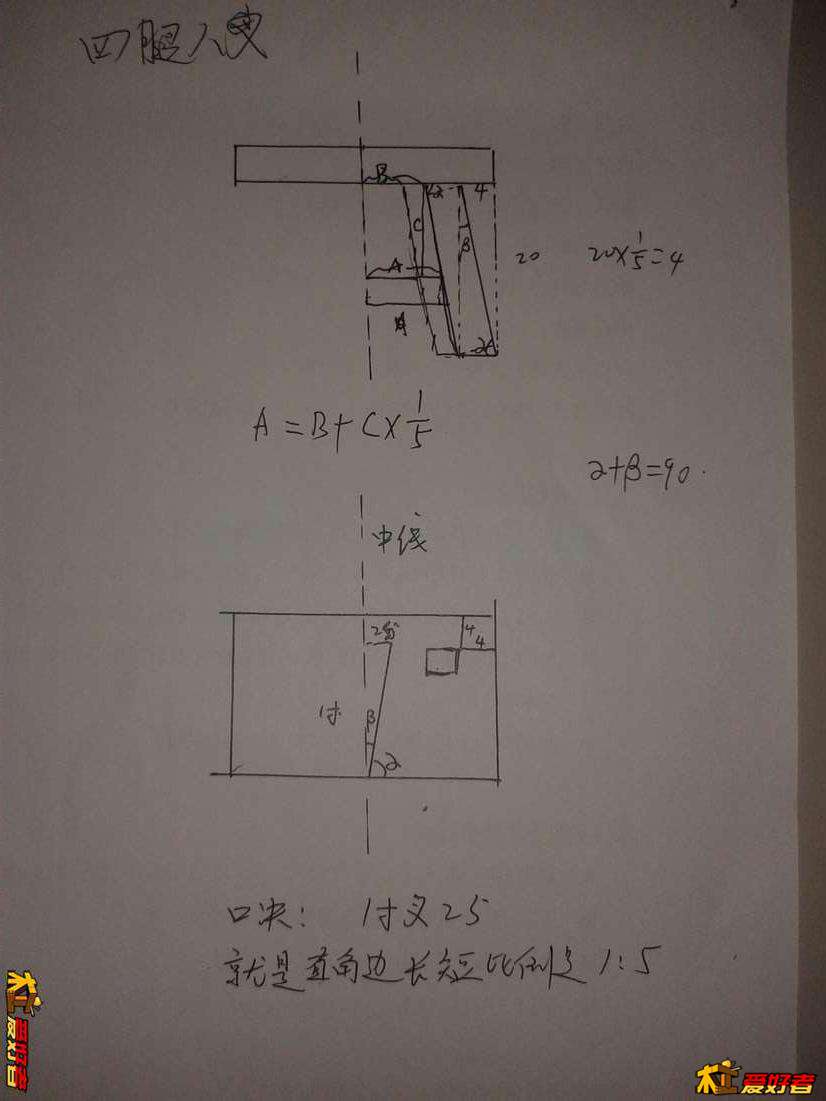 四腿八叉
B
2 4
C
β
A
20 20×1/5=4
A
α
A=B+C×1/5
α+β=90.
中线
2分
4
4
1寸
β
α
口决: 1寸叉25
就是直角边长短比例是 1:5
木工爱好者
木工爱好者